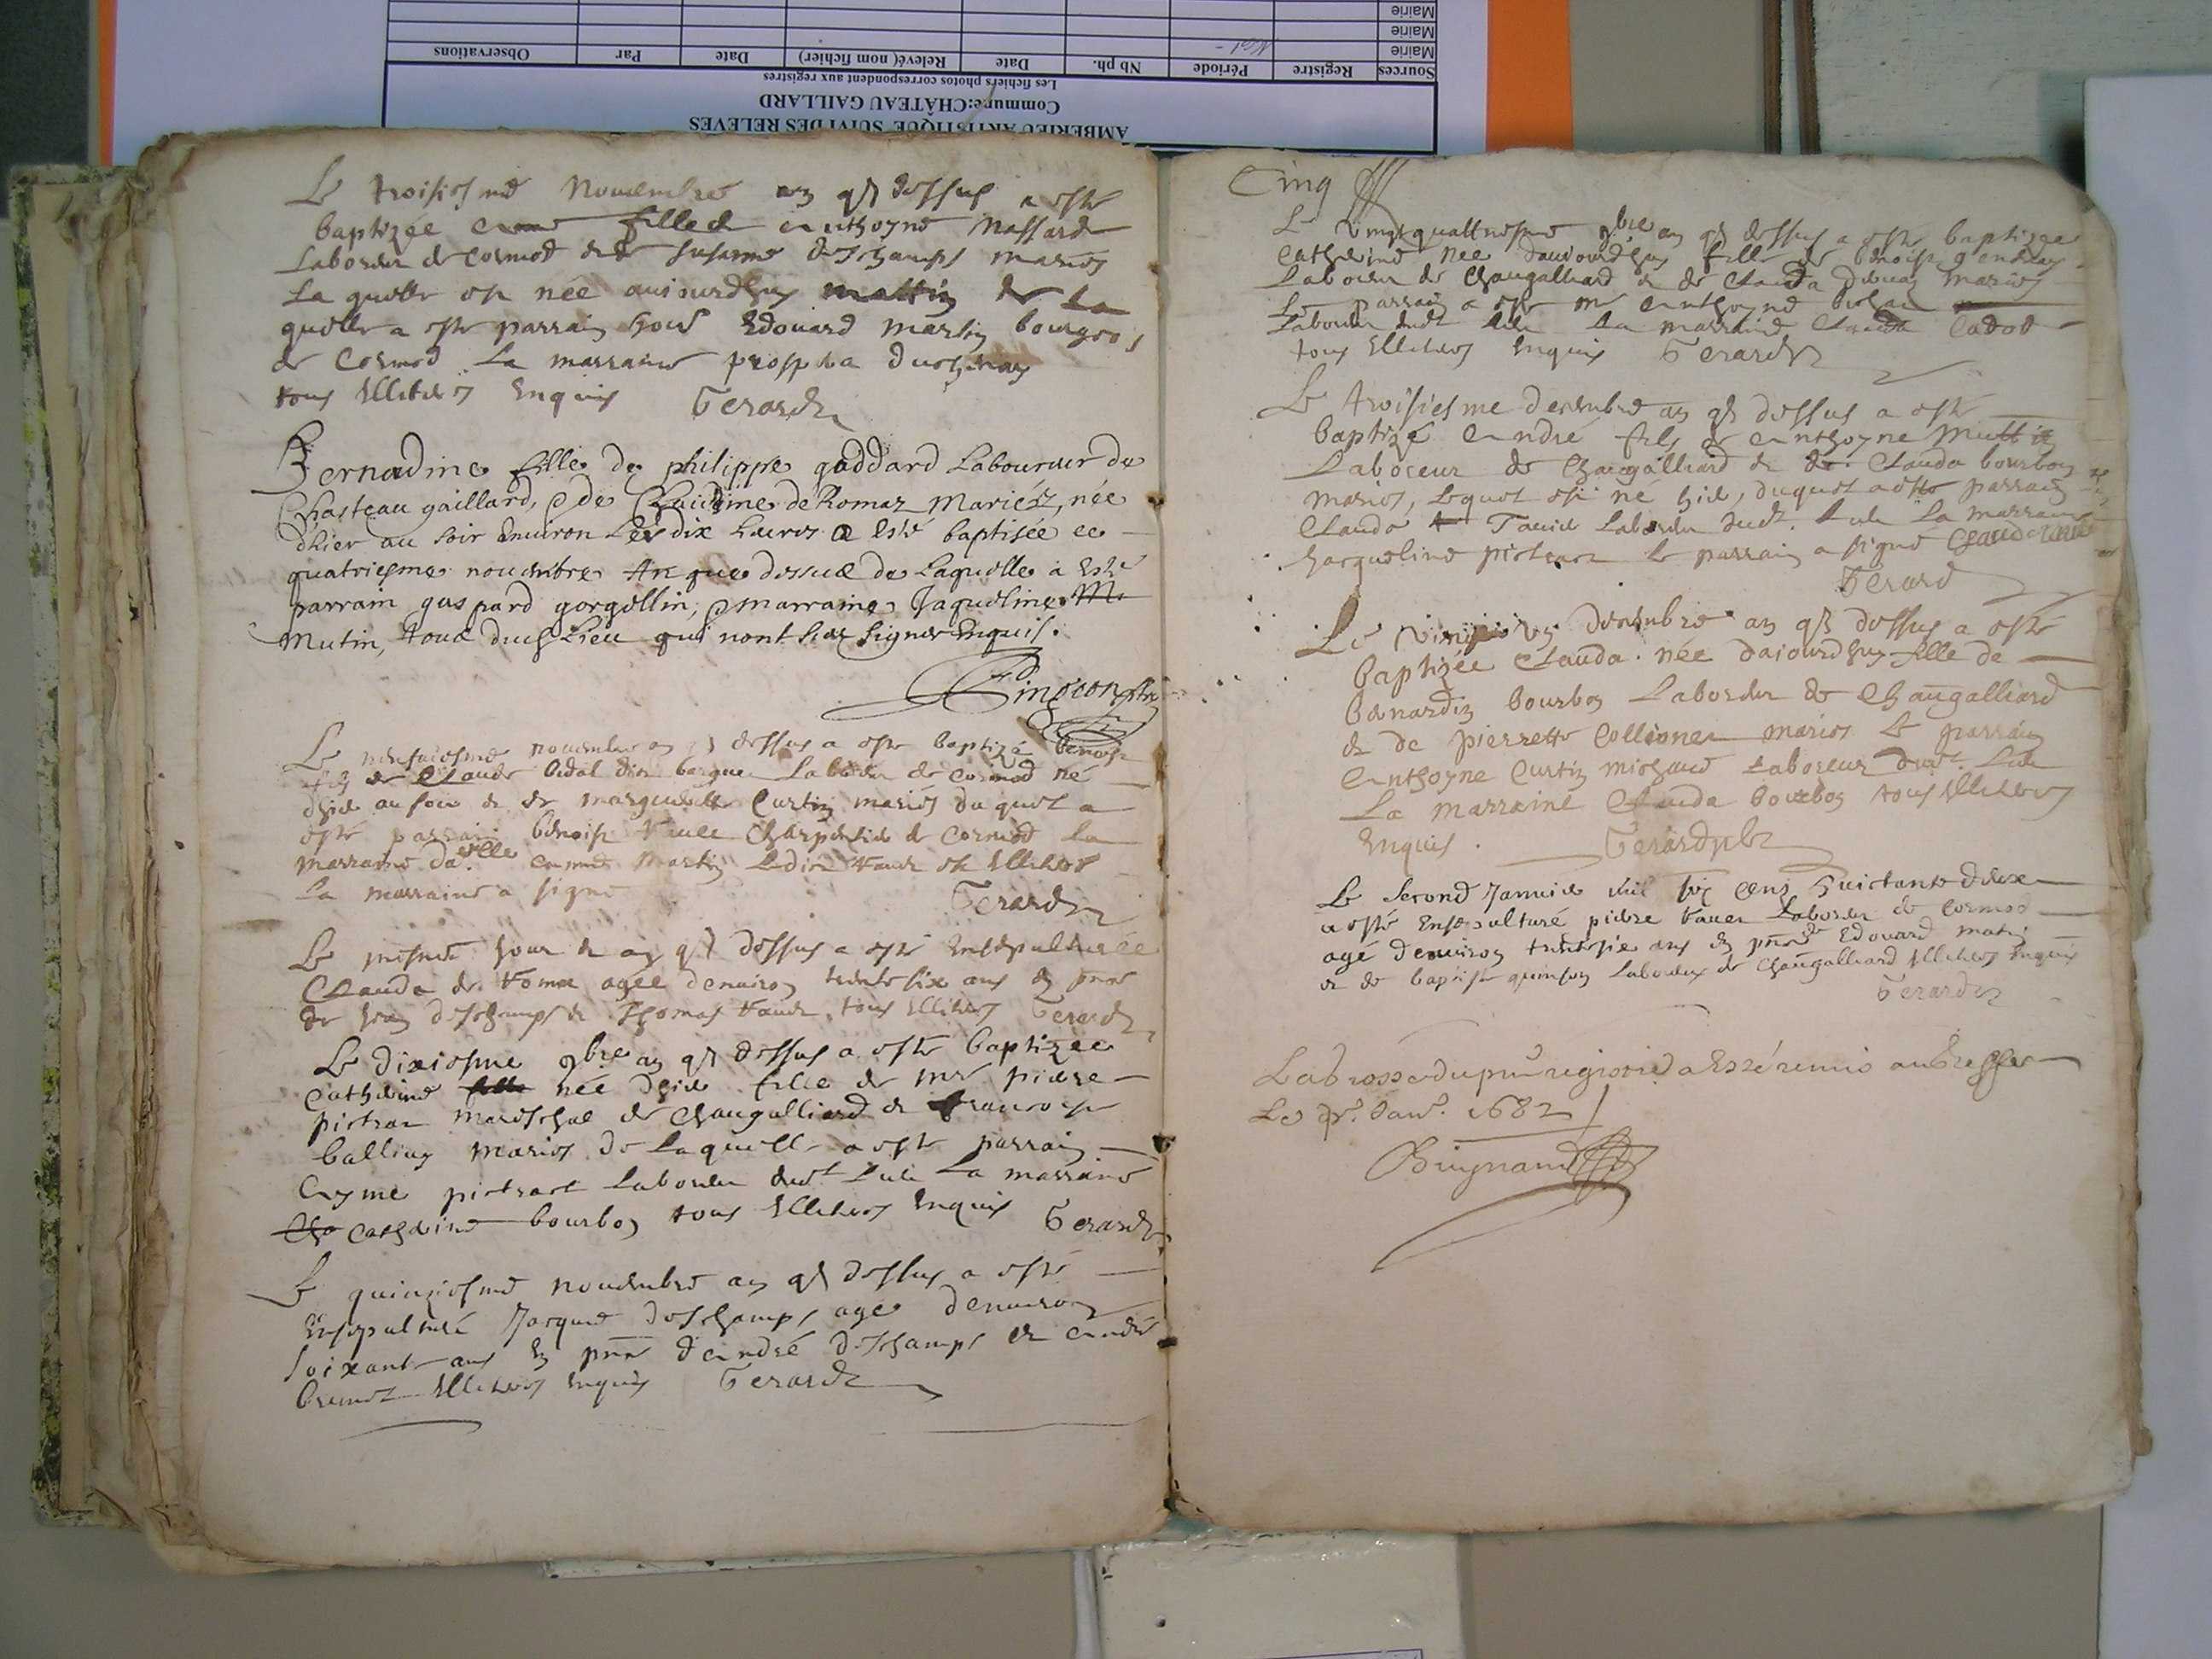 Mairie
Mairie
Mairie
Sources Registre Période Nb ph. Date Relevé( nom fichier) Date Par Observations
Les fichiers photos correspondent aux registres
Commune:CHÂTEAU GAILLARD
AMBERIEU ARTISTIQUE SUIVI DES RELEVES
Le troisiesme Novembre an q dessus a esté
baptizée fille de anthoyne Massard
Laboureur de Cormod et de Susanne deschamps mariés
La quelle est née auiourdhuy mattin de La
quelle a esté parrain Edouard Martin bourgeois
de Cormod La marraine duchenay
tous Illiteres Enquis Gerard
Bernardine fille de philippe goddard Laboureur de
Chasteau gaillard, & de Claudine de Romaz Mariéz, née
dhier au soir Enuiron Les dix heures a esté baptisée ce
quatriesme nouembre An que dessus de Laquelle a Esté
parrain gaspard gorgellin, & marraine Jaqueline M
Mutin, tous dud Lieu qui nont sceu signer Enquis.
Le neufuiesme nouembre an q dessus a esté baptizé benoist
filz de Claude Laboureur de Cormod né
dhier au soir et de Margueritte Curtin mariés du quel a
esté parrain benoist Charpentier de Cormod La
marraine da.elle anne Martin Ledit est Illitere
La marraine a signé Gerard
Le mesme jour et an q dessus a esté Ensepulturée
Clauda de Romaz agée denuiron trente six ans en pnce
de Jean deschamps et Thomas tous Illiteres Gerard
Le dixiesme 9bre an q dessus a esté baptizée
Catherine fille née dhier fille de mre pierre
pictrar Mareschal de Changalliard et francoise
ballium mariés de Laquelle a esté parrain
Aymé Laboureur dudt Lieu La marraine
Catherine bourbon tous Illiteres Enquis Gerard
Le quinziesme nouembre an q dessus a esté
Ensepulturé Jacques deschamps agé denuiron
soixante ans en pnce dandré deschamps et andré
brunet Illiteres Enquis Gerard
Cinq
Le vingtquattriesme 9bre an q dessus a esté baptizée
Catherine née daujourdhuy fille de benoist
Laboureur de Changalliard et de Clauda mariés
Le parrain a esté mr anthoyne
Laboureur dudt Lieu La marraine Clauda Cadot
tous Illiteres Enquis Gerard
Le troisiesme decembre an q dessus a esté
baptizé andré fils de anthoyne Muttin
Laboreur de Changalliard et de Clauda bourbon
mariés, Lequel est né hier, duquel a esté parrain
Claude Tauier Laboureur dudt. Lieu La marraine
Jacqueline Le parrain a signé
Gerard
Le decembre an q dessus a esté
baptizée Clauda née dajourdhuy fille de
bernardin bourbon Laboureur de Changalliard
et de pierrette mariés Le parrain
anthoyne Curtin michaud Laboreur dudt. Lieu
La marraine Clauda bourbon tous Illiteres
Enquis. Gerard pbr
Le second Januier mil six cens huictante deux
a esté Ensepulturé pierre Laboureur de Cormod
agé denuiron trente six ans en pnce de Edouard
et de baptiste quinson Laboureur de Changalliard Illiteres Enquis
Gerard
La grosse du pnt registre a Esté remis au Greffe
Le pr. Janr. 1682